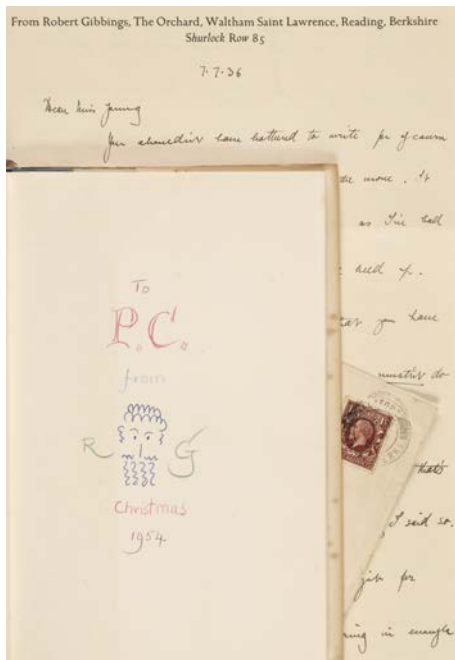 From Robert Gibbings, The Orchard, Waltham Saint Lawrence, Reading, Berkshire
Shurlock Row 85
7.7.36
Dear Miss Young
You shouldn't have bothered to write for of course
the more. It
as I've had
held up.
that you have
mustn't do
that's
I said so.
for
in enough
To
P.C.
from
R G
Christmas
1954